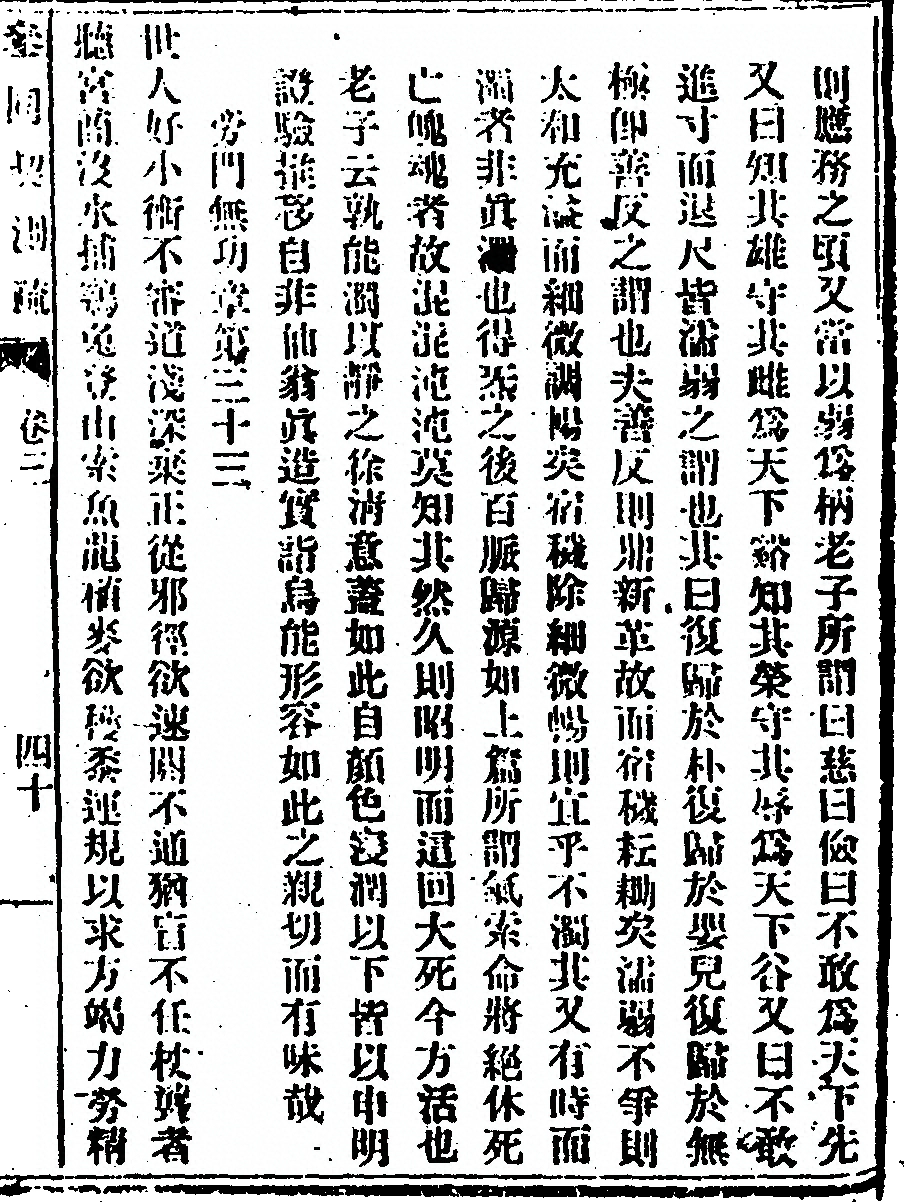 則應務之頃又當以弱爲柄老子所謂曰慈曰儉曰不敢爲天下先
又曰知其雄守其雌爲天下谿知其榮守其辱爲天下谷又曰不敢
進寸而退尺皆濡弱之謂也其曰復歸於朴復歸於嬰兒復歸於無
極卽善反之謂也夫善反則鼎新革故而宿穢耘耡矣濡弱不爭則
太和充溢而細微調暢矣宿穢除細微暢則宜乎不濁其又有時而
濁者非眞濁也得炁之後百脈歸源如上篇所謂氣索命將絕休死
亡魄魂者故混混沌沌莫知其然久則昭明而這回大死今方活也
老子云孰能濁以靜之徐淸意蓋如此自顏色浸潤以下皆以申明
證驗推移自非仙翁眞造實詣烏能形容如此之親切而有味哉
旁門無功章第三十三
世人好小術不審道淺深棄正從邪徑欲速閼不通猶盲不任杖聾者
聽宮商沒水捕鶉兔登山索魚龍植麥欲穫黍運規以求方竭力勞精
參同契測疏
卷三
四十